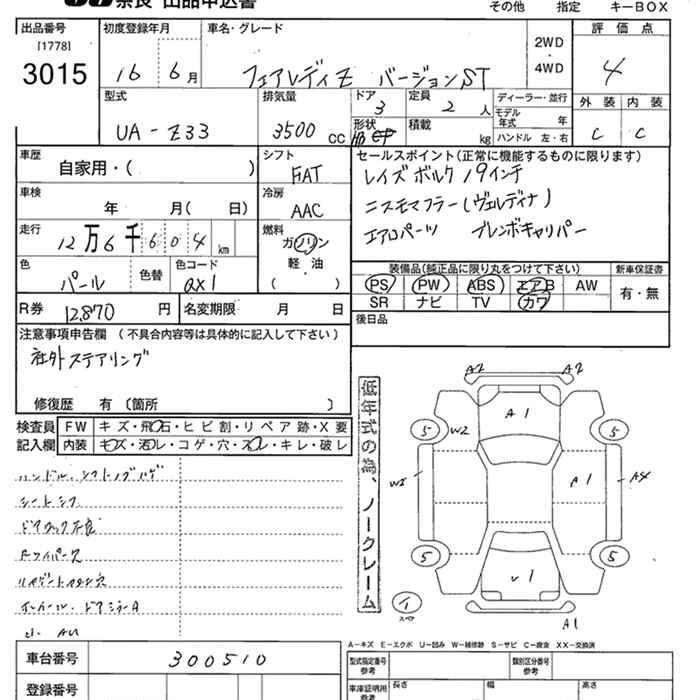 奈良 出品申込書
その他 指定 キーBOX
出品番号
[1778]
3015
初度登録年月
16 6月
車名・グレード
フェアレディZ バージョンST
2WD
4WD
評価点
4
型式
UA-Z33
排気量
3500 CC
ドア
3
定員
2 人
形状
積載
kg
ディーラー・並行
モデル年式 年
ハンドル 左・右
外装 内装
C C
車歴
自家用・( )
シフト
FAT
セールスポイント(正常に機能するものに限ります)
レイズ ボルク 19インチ
ニスモマフラー(ヴェルディナ)
エアロパーツ ブレンボキャリパー
車検
年 月( 日)
冷房
AAC
走行
12万6千604 km
燃料
ガソリン
軽・油
( )
色
パール
色替
色コード
QX1
装備品(純正品に限り丸をつけて下さい)
PS PW ABS エアB AW
SR ナビ TV カワ
新車保証書
有・無
R券 12,870 円
名変期限 月 日
後日品
注意事項申告欄 (不具合内容等は具体的に記入して下さい)
社外ステアリング
修復歴 有〔箇所 〕
検査員
記入欄
FW キズ・飛石・ヒビ割・リペア跡・X要
内装 キズ・汚レ・コゲ・穴・スレ・キレ・破レ
ハンドル、シフトノブハゲ
シートシワ
ドアロック不良
低年式の為、ノークレーム
A2 A2
A1
5 W2 5
W2 A1 A4
5 5
1
スペア
A1
A-キズ E-エクボ U-凹み W-補修跡 S-サビ C-腐食 XX-交換済
車台番号 300510
登録番号
型式指定番号
参考
類別区分番号
参考
車庫証明用
参考
長さ 幅 高さ